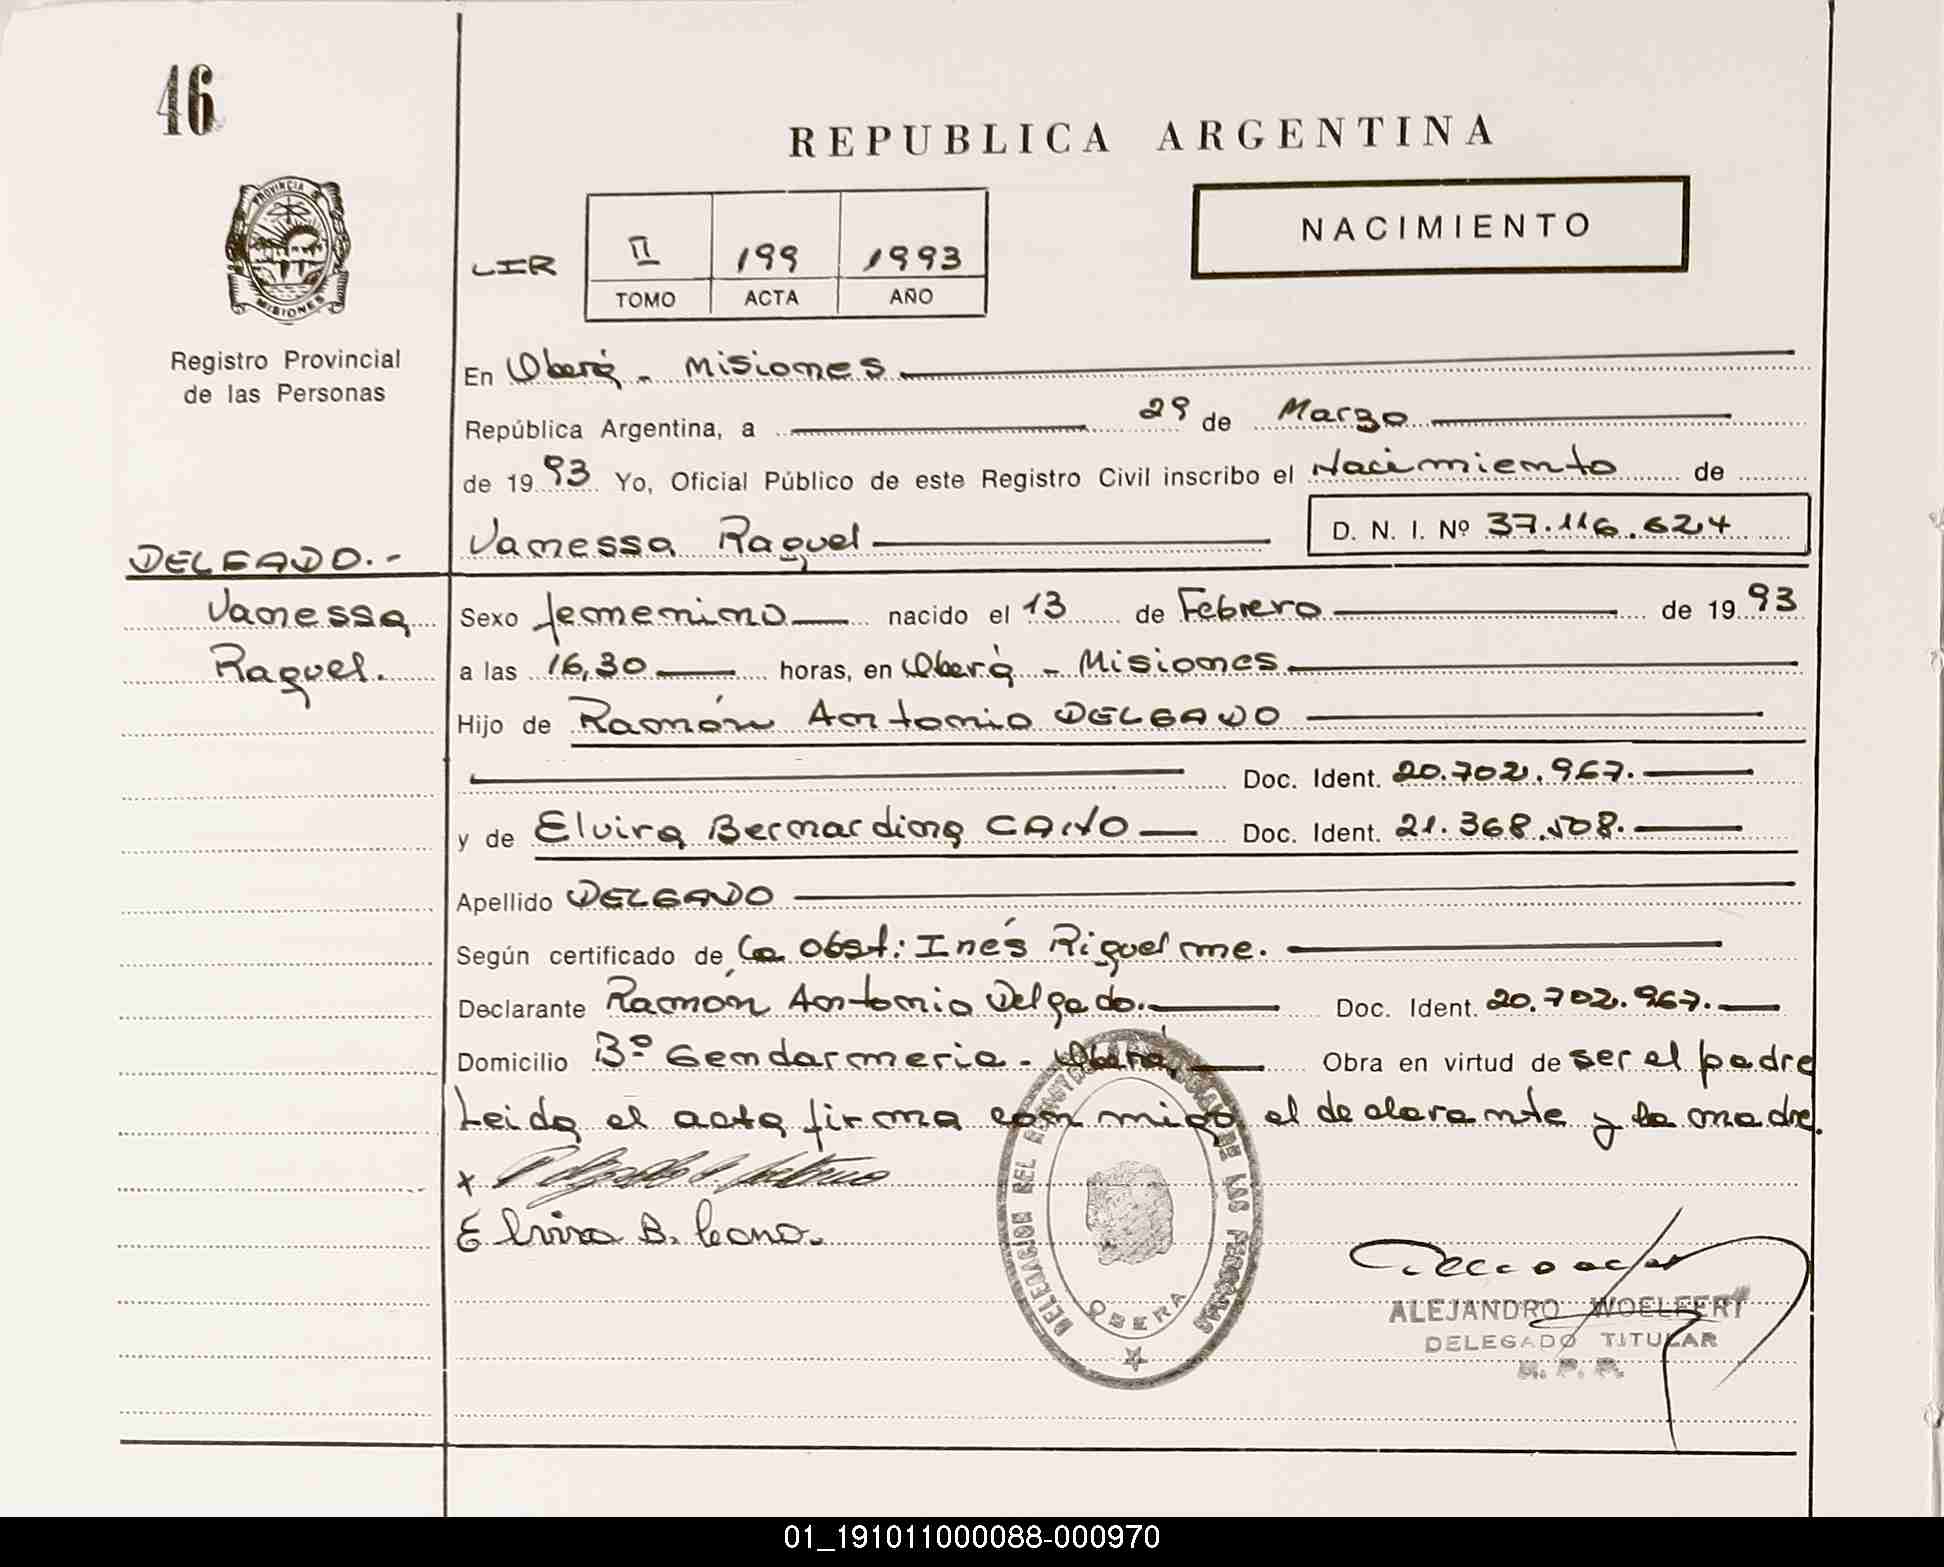 46
REPUBLICA ARGENTINA
NACIMIENTO
LIR
II 199 1993
TOMO ACTA AÑO
PROVINCIA D
MISIONES
Registro Provincial
de las Personas
En Oberá - Misiones
República Argentina, a 29 de Marzo
de 1993 Yo, Oficial Público de este Registro Civil inscribo el Nacimiento de
Vanessa Raquel D. N. I. Nº 37.116.624
DELGADO.-
Vanessa
Raquel.
Sexo femenino nacido el 13 de Febrero de 1993
a las 16,30 horas, en Oberá - Misiones
Hijo de Ramón Antonio DELGADO
Doc. Ident. 20.702.967.
y de Elvira Bernardina CANO Doc. Ident. 21.368.508.
Apellido DELGADO
Según certificado de la Obst: Inés Riquelme.
Declarante Ramón Antonio Delgado. Doc. Ident. 20.702.967.
Domicilio Bº Gendarmeria - Oberá, Obra en virtud de ser el padre
Leida el acta firma conmigo el declarante y la madre.
x
Elvira B. Cano.
DELEGACION DEL REGISTRO PROVINCIAL DE LAS PERSONAS
OBERA
ALEJANDRO WOELFERT
DELEGADO TITULAR
R. P. P.
01_191011000088-000970